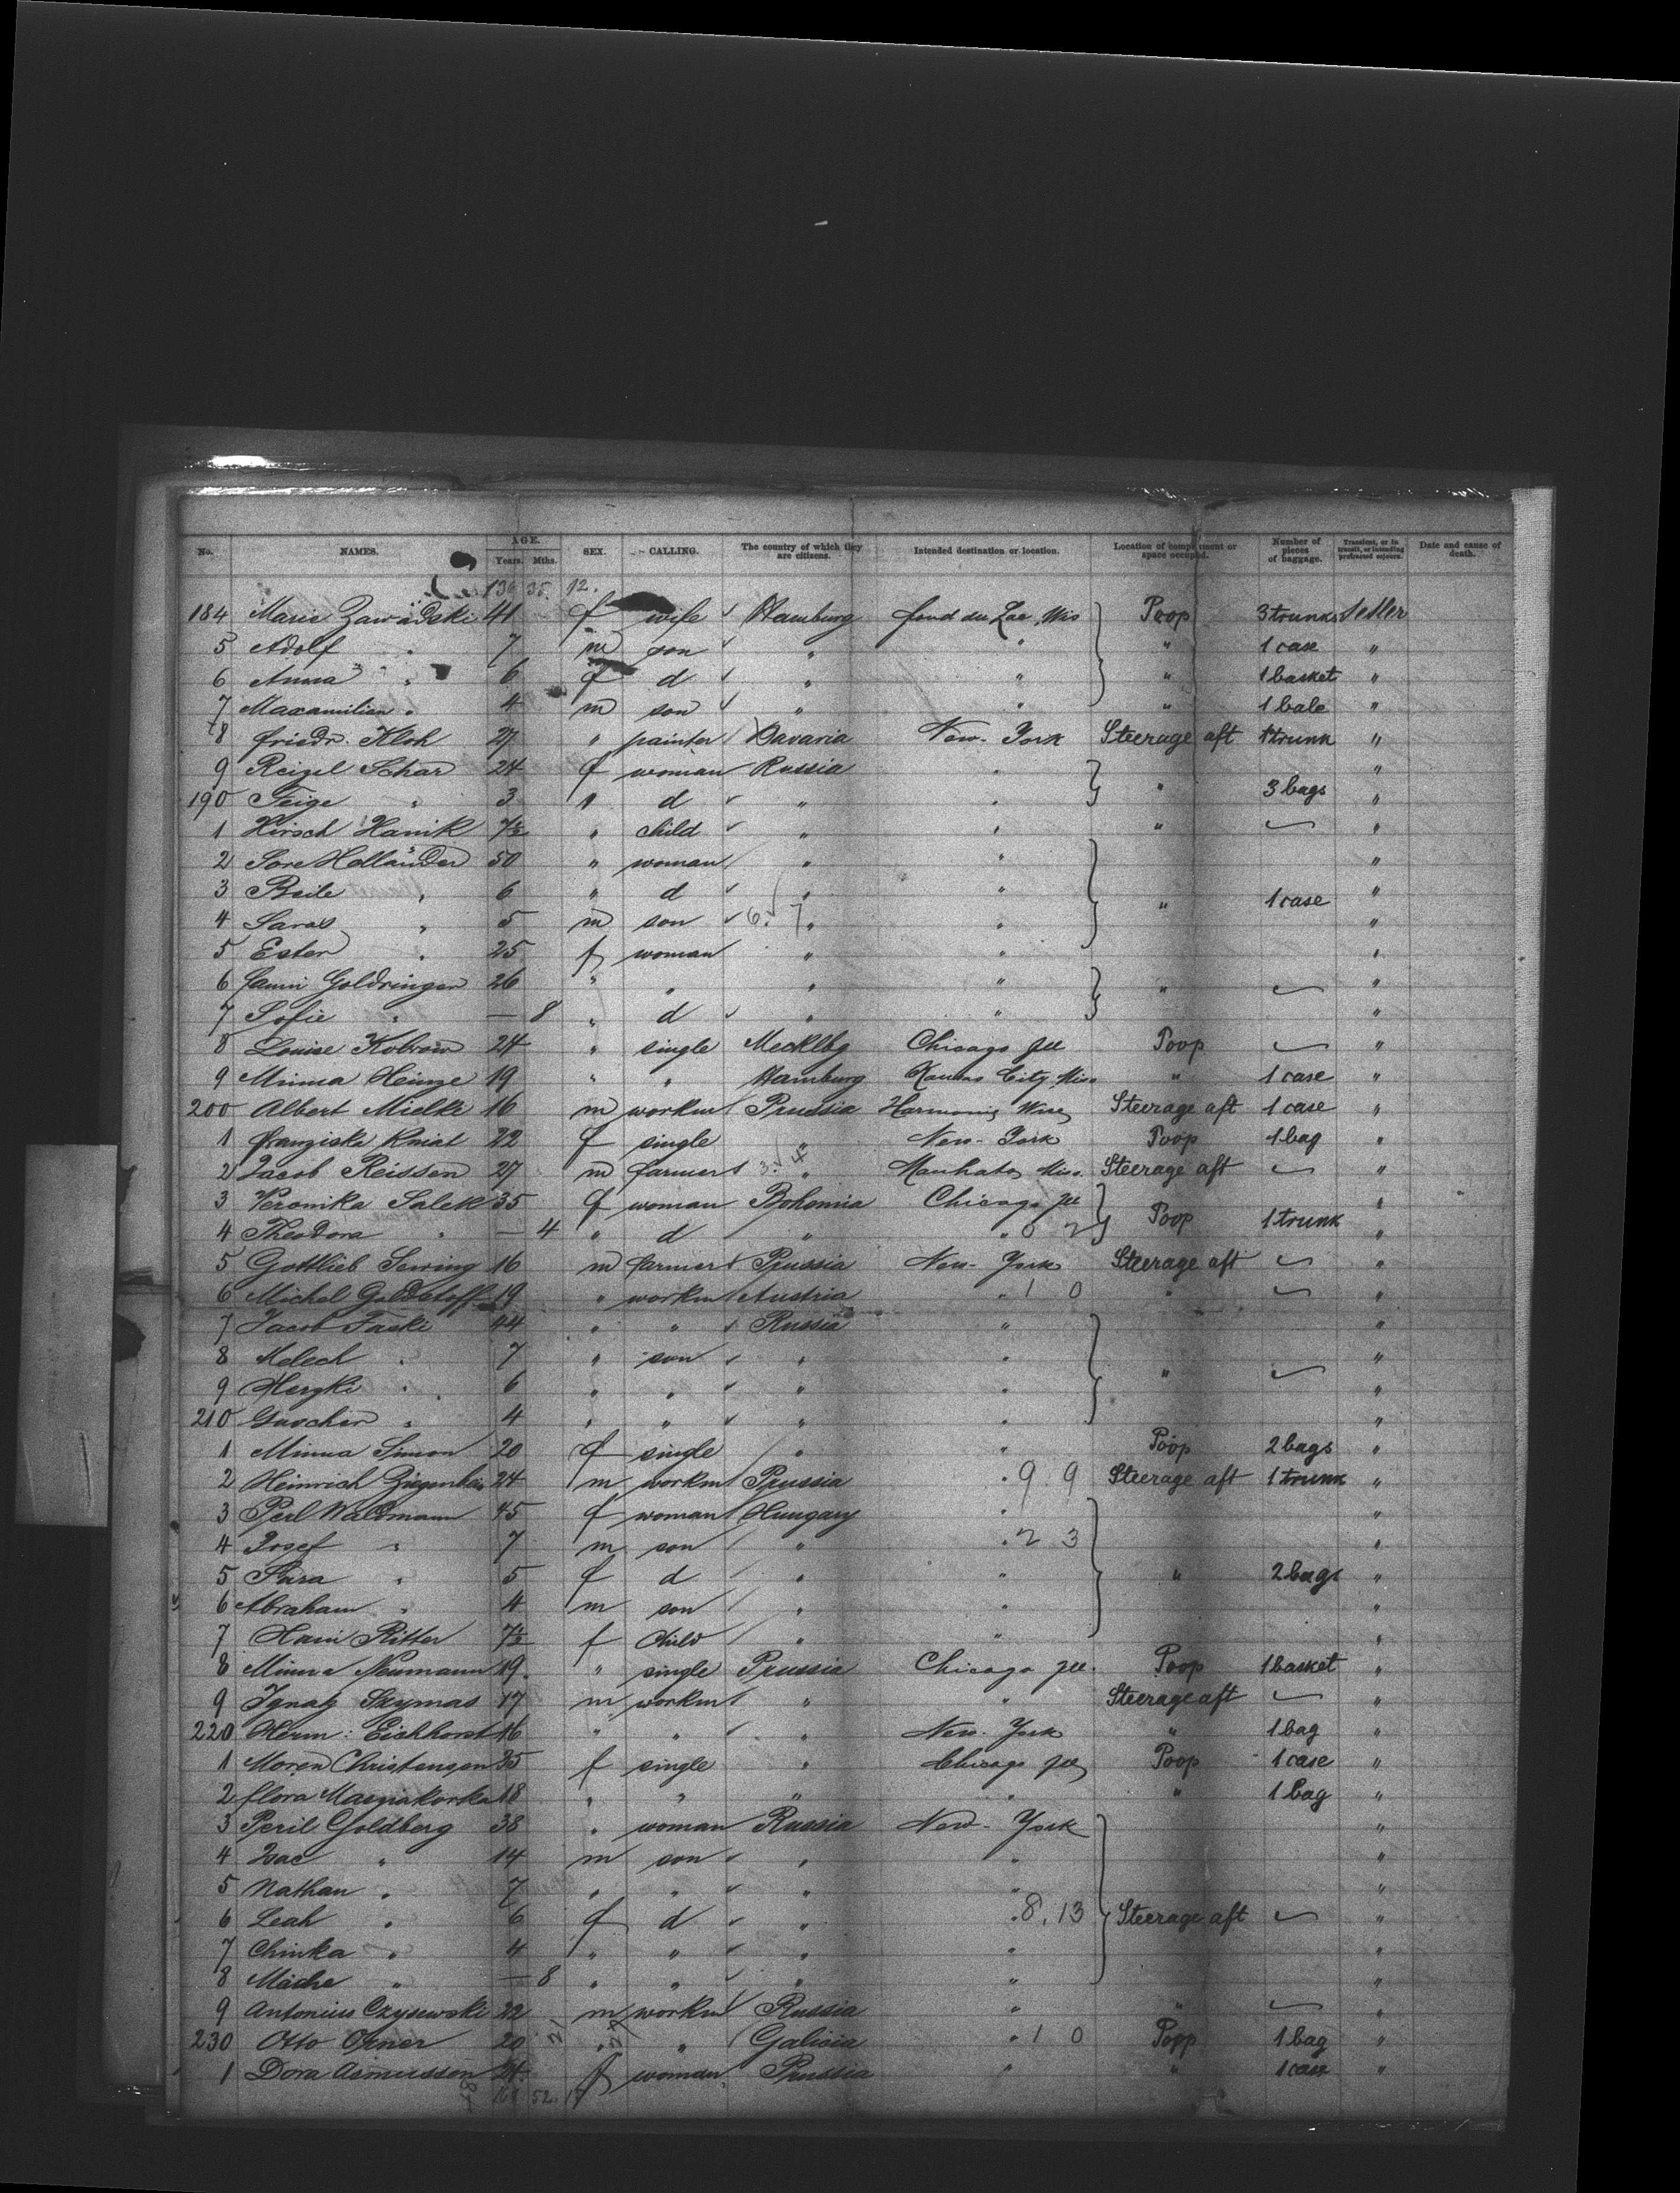 No. NAMES. AGE. Years. Mths. SEX. CALLING. The country of which they are citizens. Intended destination or location. Location of compartment or space occupied. Number of pieces of baggage. Transient, or in transit, or intending protracted sojourn. Date and cause of death.
136 35. 12.
184 Marie Zawadski 41 f wife Hamburg fond du Lac, Wis Poop 3 trunks Settler
5 Adolf " 7 m son " " " 1 case "
6 Anna " 6 f d " " " 1 basket "
7 Maxamilian " 4 m son " " " 1 bale "
8 friedr. Kloh 27 " painter Bavaria New-York Steerage aft 1 trunk "
9 Reizel Schar 24 f woman Russia " "
190 Feige " 3 " d " " " 3 bags "
1 Hirsch Hanik 7½ " child " " " "
2 Sore Holländer 50 " woman " " "
3 Beile " 6 " d " " "
4 Saras " 5 m son 6. 7 " " " 1 case "
5 Ester " 25 f woman " " "
6 fanni Goldringer 26 " " " " " "
7 Sofie " — 8 " d " " "
8 Louise Kobrow 24 " single Mecklbg Chicago Ill Poop "
9 Minna Heinze 19 " " Hamburg Kansas City Miss " 1 case "
200 Albert Mielke 16 m workm Prussia Harmonis Wis Steerage aft 1 case "
1 franziska Kniat 22 f single " New-York Poop 1 bag "
2 Jacob Reissen 27 m farmer 3. 4 " Manhato, Mis. Steerage aft "
3 Veronika Salek 35 f woman Bohemia Chicago Ill "
4 Theodora " — 4 " d " " 0 2 Poop 1 trunk "
5 Gottlieb Sewing 16 m farmer Prussia New-York Steerage aft "
6 Michel Goldstoff 19 " workm Austria " 1 0 " "
7 Jacob Faski 44 " " Russia " "
8 Melech " 7 " son " " "
9 Herzki " 6 " " " " " "
210 Guscher " 4 " " " " "
1 Minna Simon 20 f single " " Poop 2 bags "
2 Heinrich Ziegenbein 24 m workm Prussia " 9 9 Steerage aft 1 trunk "
3 Perl Waldmann 45 f woman Hungary " "
4 Josef " 7 m son " " 2 3 "
5 Sara " 5 f d " " " 2 bags "
6 Abraham " 4 m son " " "
7 Hani Ritter 7½ f Child " " "
8 Minna Neumann 19 " single Prussia Chicago Ill. Poop 1 basket "
9 Ignatz Szymas 17 m workm " " Steerage aft "
220 Herm: Eichhorst 16 " " " New-York " 1 bag "
1 Moren Christensen 35 f single " Chicago Ill Poop 1 case "
2 flora 18 " " " " " 1 bag "
3 Peril Goldberg 38 " woman Russia New-York "
4 Isac " 14 m son " " "
5 Nathan " 7 " " " " "
6 Leah " 6 f d " " 8, 13 Steerage aft "
7 Chinka " 4 " " " " "
8 Mache " — 8 " " " " "
9 Antonius Czysewski 22 m workm Russia " " "
230 Otto 20 " " Galicia " 1 0 Poop 1 bag "
1 Dora Asmussen 24 f woman Prussia " " 1 case "
52. 17